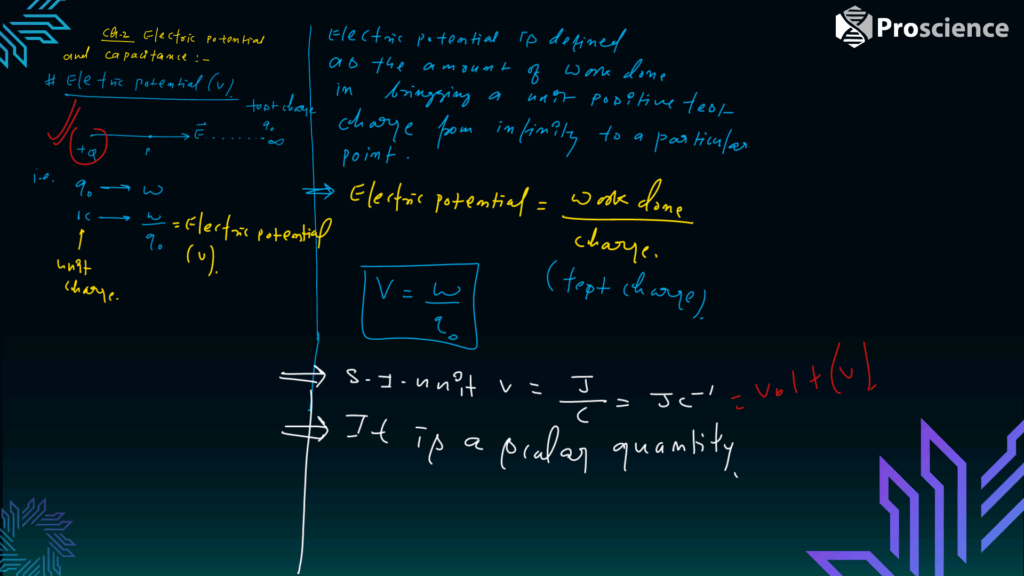 Ch-2 Electric potential
and capacitance:-
# Electric potential (V)
test charge
+Q P E⃗ ........ q₀ ∞
i.e. q₀ → W
1C → W/q₀ = Electric potential
(V).
unit
charge.
Electric potential is defined
as the amount of work done
in bringging a unit positive test
charge from infinity to a particular
point.
⇒ Electric potential = work done / charge.
(test charge).
V = W/q₀
⇒ S.I. unit V = J/C = JC⁻¹ = Volt (V)
⇒ It is a scalar quantity.
Proscience